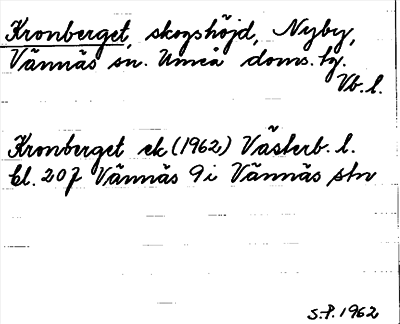 Kronberget, skogshöjd, Nyby,
Vännäs sn. Umeå doms. tg.
Vb. l.
Kronberget ek (1962) Västerb. l.
bl. 207 Vännäs 9i Vännäs stn
S.P. 1962